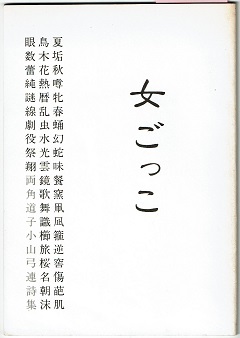 女ごっこ
夏垢秋噂牝春蛹幻蛇味餐窯籠逆窖傷葩肌
鳥木花熱暦乱虫水光雲鏡歌舞識櫛旅桜名朝沫
眼数蕾純謎線劇役祭翔両角道子小山弓連詩集